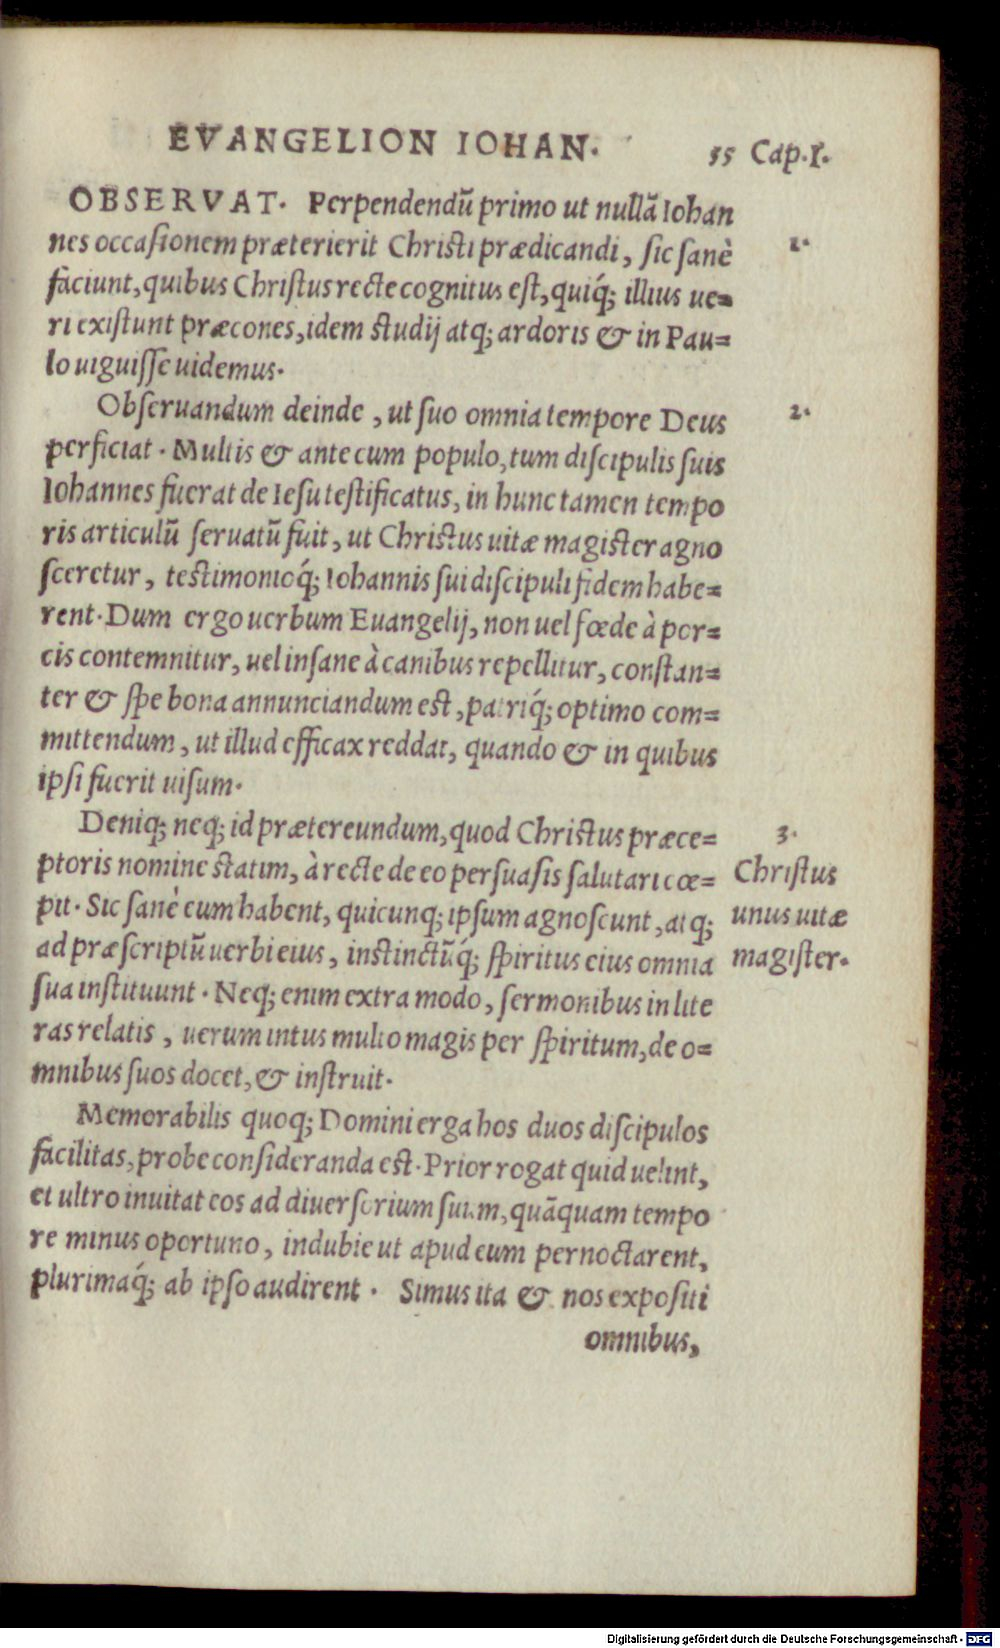 EVANGELION IOHAN. 35 Cap.I.
OBSERVAT. Perpendendũ primo ut nullã Iohan
nes occasionem præterierit Christi prædicandi, sic sanè
faciunt, quibus Christus recte cognitus est, quiq́; illius ue=
ri existunt præcones, idem studij atq; ardoris & in Pau=
lo uiguisse uidemus.
1.
Obseruandum deinde, ut suo omnia tempore Deus
perficiat. Multis & ante cum populo, tum discipulis suis
Iohannes fuerat de Iesu testificatus, in hunc tamen tempo
ris articulũ seruatũ fuit, ut Christus uitæ magister agno
sceretur, testimonioq́; Iohannis sui discipuli fidem habe=
rent. Dum ergo uerbum Euangelij, non uel fœde à por=
cis contemnitur, uel insane à canibus repellitur, constan=
ter & spe bona annunciandum est, patriq́; optimo com=
mittendum, ut illud efficax reddat, quando & in quibus
ipsi fuerit uisum.
2.
Deniq; neq; id prætereundum, quod Christus præce=
ptoris nomine statim, à recte de eo persuasis salutari cœ=
pit. Sic sanè eum habent, quicunq; ipsum agnoscunt, atq;
ad præscriptũ uerbi eius, instinctũq́; spiritus eius omnia
sua instituunt. Neq; enim extra modo, sermonibus in lite
ras relatis, uerum intus multo magis per spiritum, de o=
mnibus suos docet, & instruit.
3.
Christus
unus uitæ
magister.
Memorabilis quoq; Domini erga hos duos discipulos
facilitas, probe consideranda est. Prior rogat quid uelint,
et ultro inuitat eos ad diuersorium suum, quãquam tempo
re minus oportuno, indubie ut apud eum pernoctarent,
plurimaq́; ab ipso audirent. Simus ita & nos expositi
omnibus,
Digitalisierung gefördert durch die Deutsche Forschungsgemeinschaft - DFG